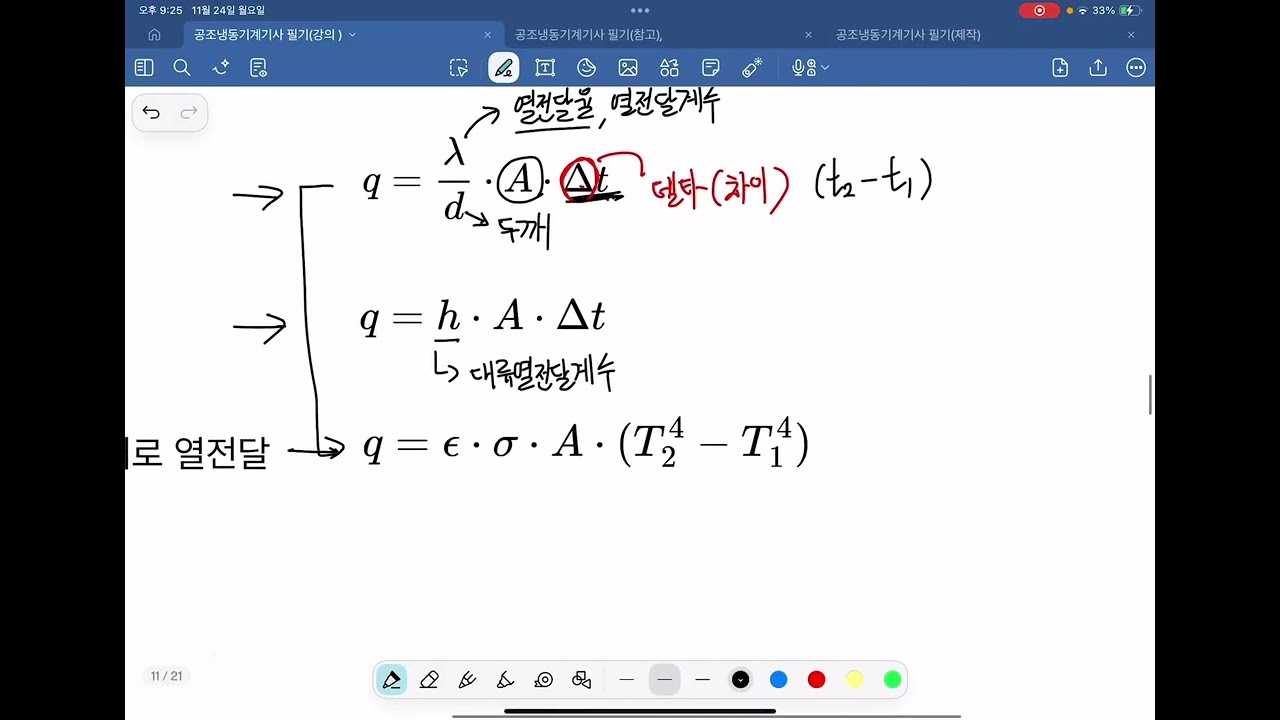 오후 9:25 11월 24일 월요일
33%
공조냉동기계기사 필기(강의 )
공조냉동기계기사 필기(참고),
공조냉동기계기사 필기(제작)
열전달율, 열전달계수
q = λ/d · A · Δt 델타(차이) (t₂-t₁)
두께
q = h · A · Δt
대류열전달계수
로 열전달 q = ϵ · σ · A · (T₂⁴ − T₁⁴)
11 / 21